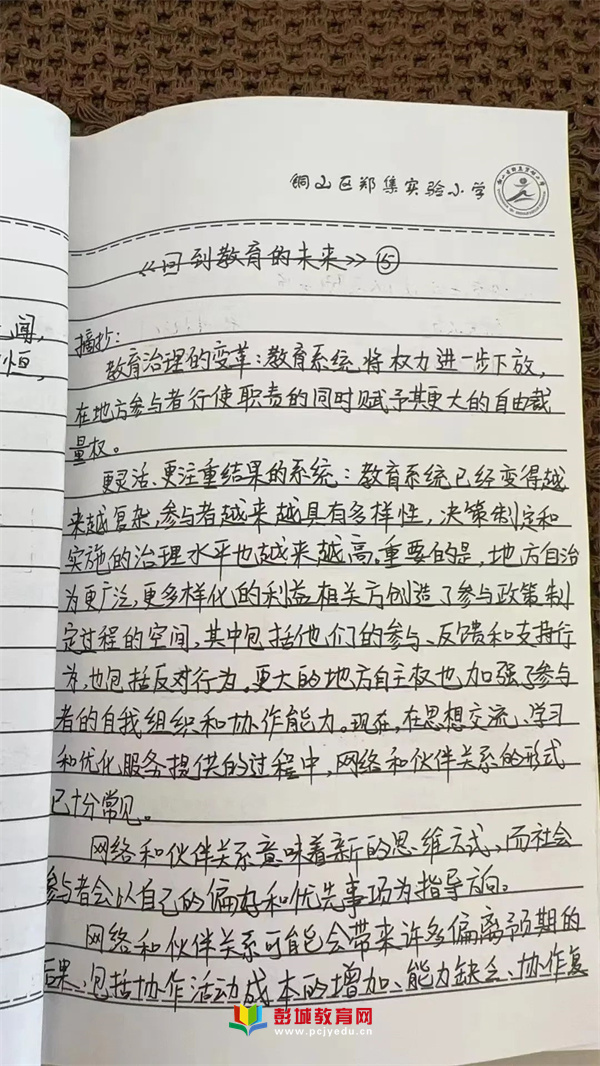 铜山区郑集实验小学
《回到教育的未来》⑮
闻,
恒,
摘抄:
教育治理的变革:教育系统将权力进一步下放,
在地方参与者行使职责的同时赋予其更大的自由裁
量权。
更灵活、更注重结果的系统:教育系统已经变得越
来越复杂,参与者越来越具有多样性,决策制定和
实施的治理水平也越来越高。重要的是,地方自治
为更广泛,更多样化的利益相关方创造了参与政策制
定过程的空间,其中包括他们的参与、反馈和支持行
为,也包括反对行为。更大的地方自主权也加强了参与
者的自我组织和协作能力。现在,在思想交流、学习
和优化服务提供的过程中,网络和伙伴关系的形式
已十分常见。
网络和伙伴关系意味着新的思维方式,而社会
参与者会以自己的偏好和优先事项为指导方向。
网络和伙伴关系可能会带来许多偏离预期的
后果,包括协作活动成本的增加、能力缺乏、协作复
彭城教育网
www.pcjyedu.cn